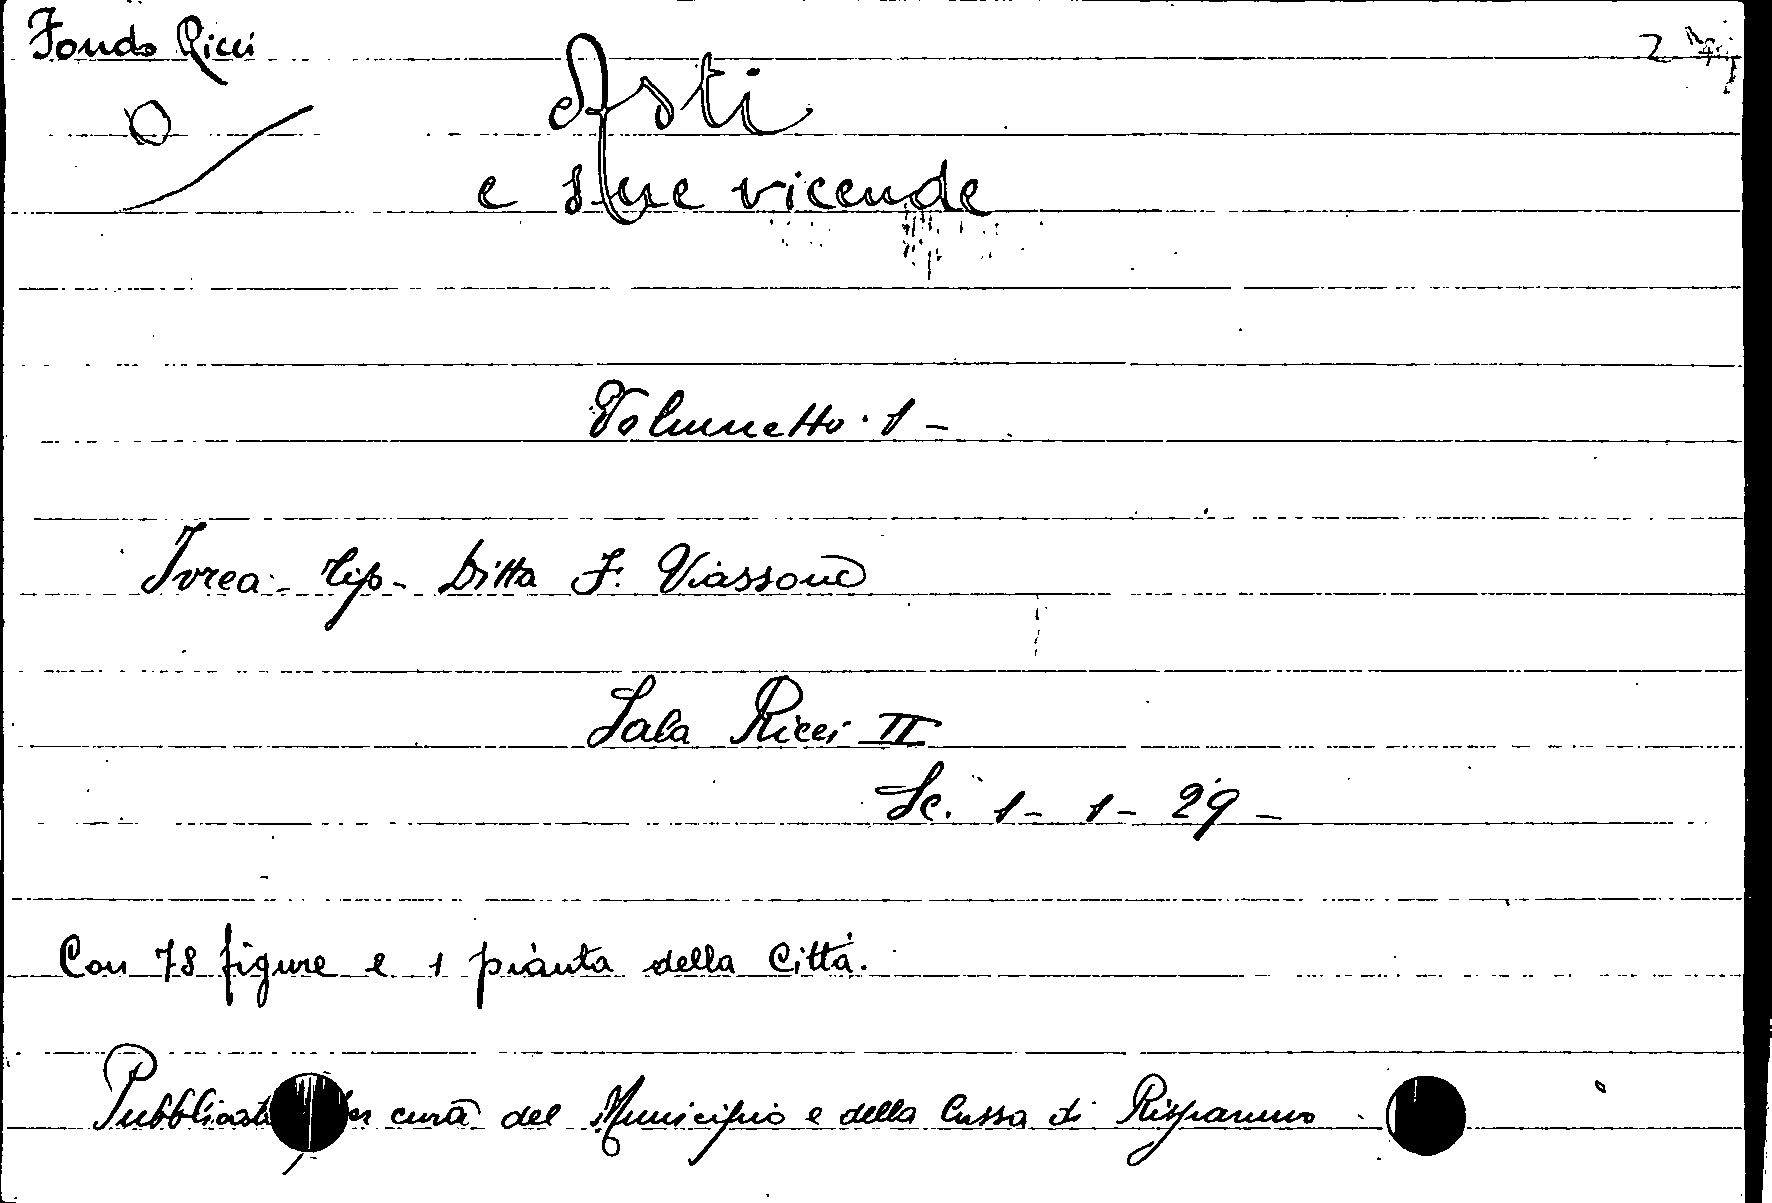 Fondo Ricci
2
Asti
e sue vicende
Volumetto · 1 -
Ivrea - tip - Ditta F. Viassone
Sala Ricci II
Sc. 1 - 1 - 29 -
Con 78 figure e 1 pianta della Città.
Pubblicato per cura del Municipio e della Cassa di Risparmio